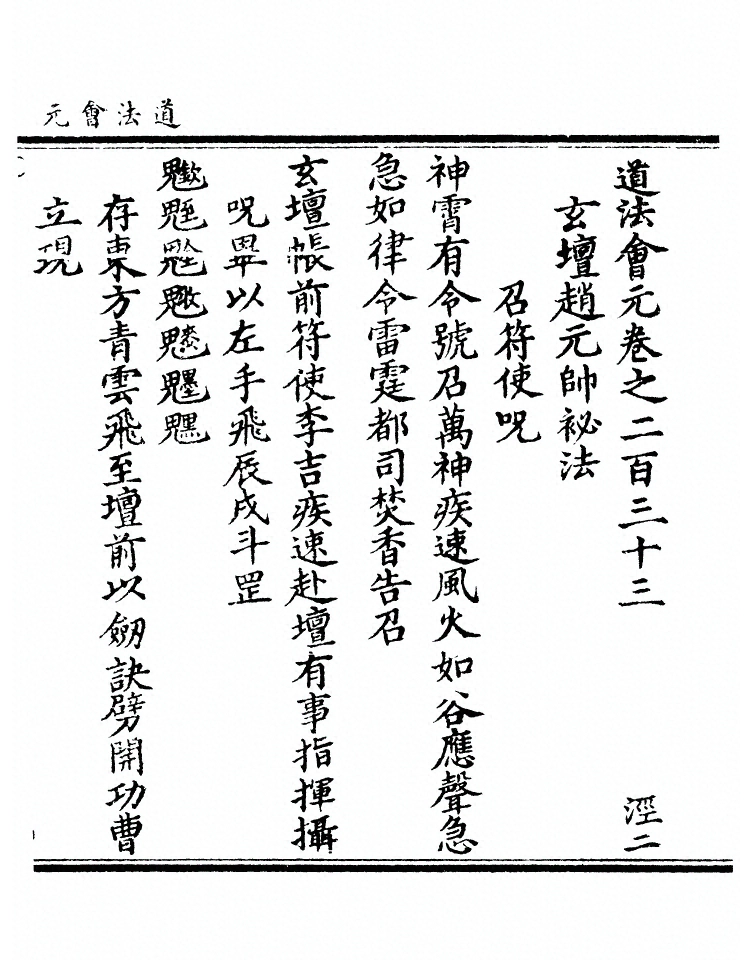 道法會元
道法會元卷之二百三十三
涇二
玄壇趙元帥祕法
召符使呪
神霄有令號召萬神疾速風火如谷應聲急
急如律令雷霆都司焚香告召
玄壇帳前符使李吉疾速赴壇有事指揮攝
呪畢以左手飛辰戌斗罡
存東方青雲飛至壇前以劒訣劈開功曹
立現